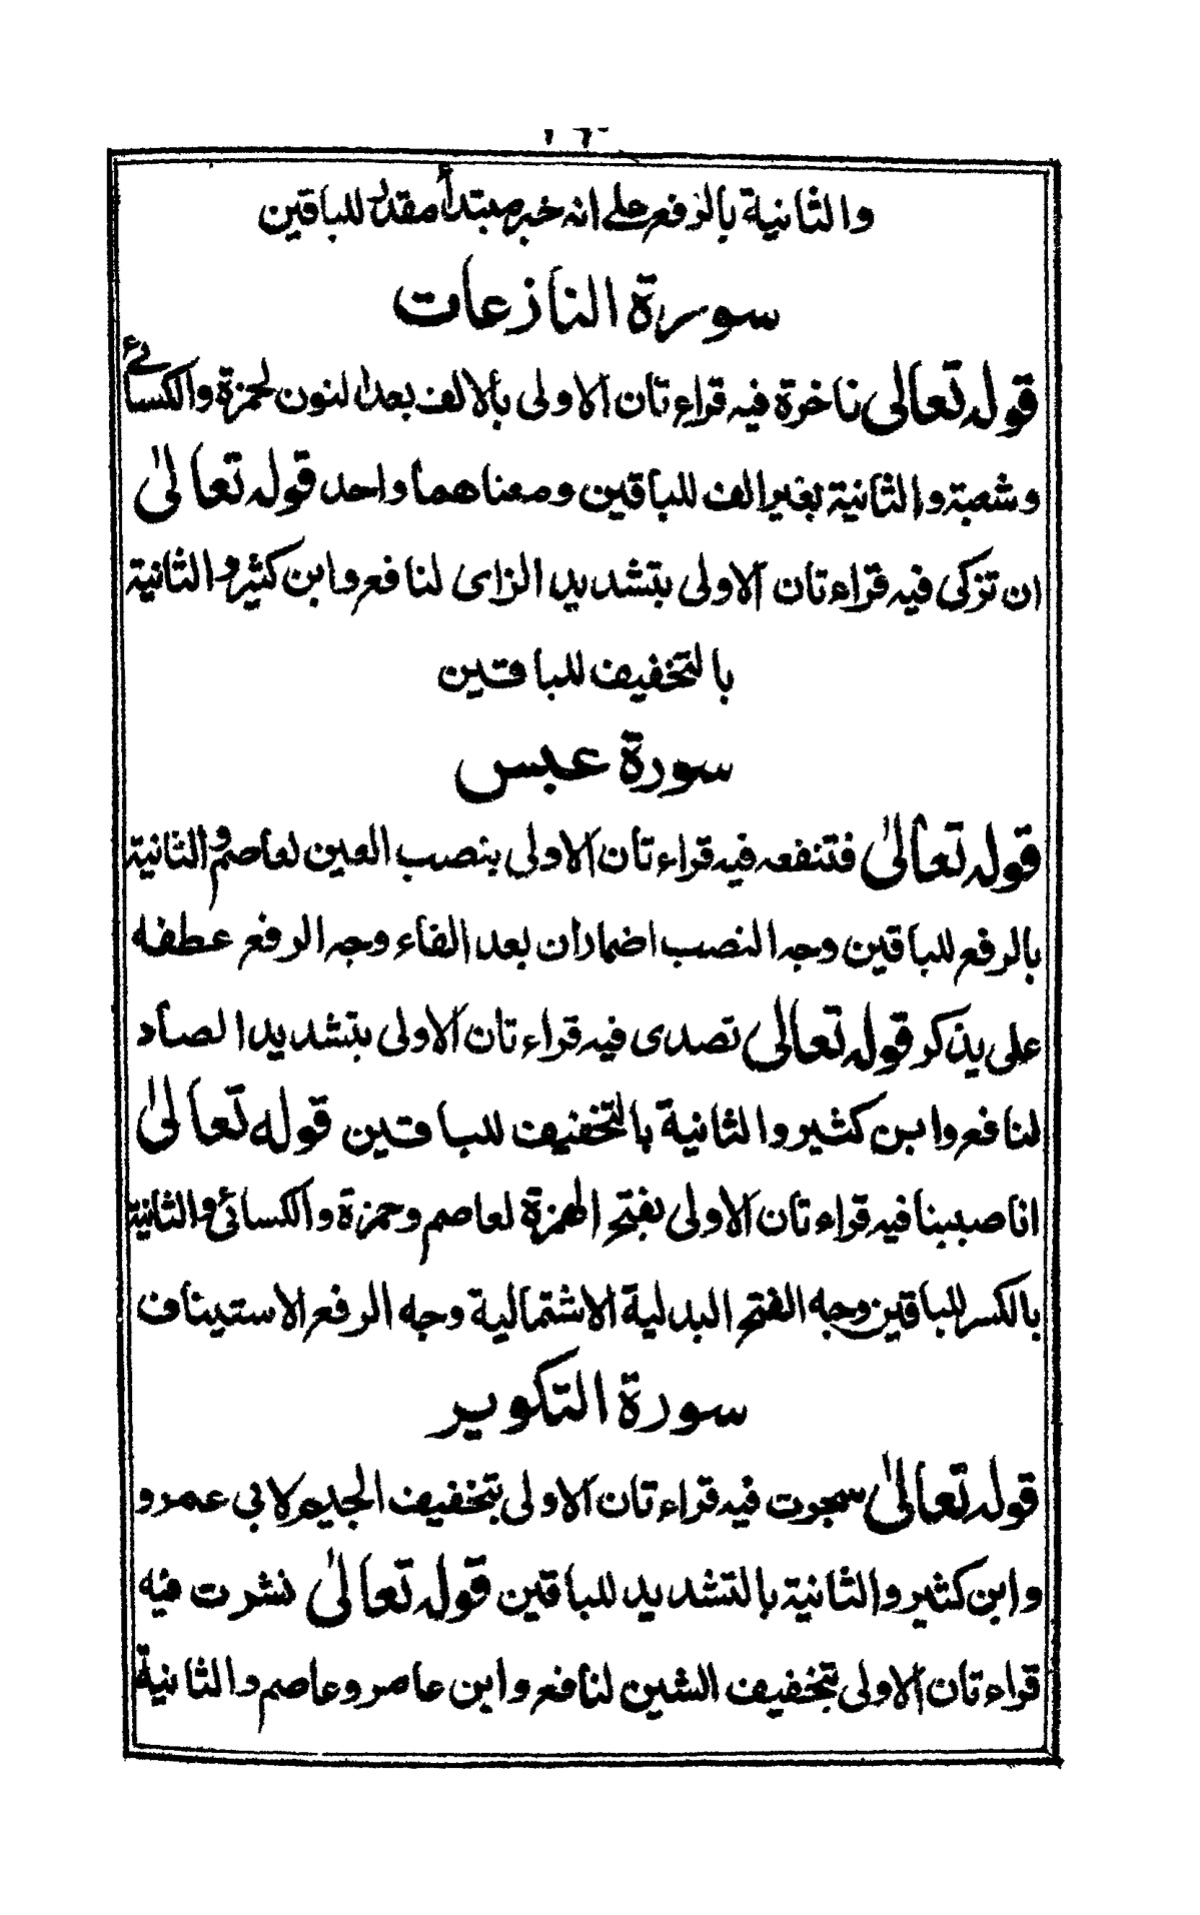 والثانية بالرفع على انه خبر مبتدأ مقدر للباقين
سورة النازعات
قوله تعالى ناخرة فيه قراءتان الاولى بألالف بعد النون لحمزة والكسائي
وشعبة والثانية بغير الف للباقين ومعناهما واحد قوله تعالىٰ
ان تزكى فيه قراءتان الاولى بتشديد الزاى لنافع وابن كثير والثانية
بالتخفيف للباقين
سورة عبس
قوله تعالىٰ فتنفعه فيه قراءتان الاولى بنصب العين لعاصم والثانية
بالرفع للباقين وجه النصب اضمار ان بعد الفاء وجه الرفع عطفه
على يذكر قوله تعالى تصدى فيه قراءتان الاولى بتشديد الصاد
لنافع وابن كثير والثانية بالتخفيف للباقين قوله تعالىٰ
انا صببنا فيه قراءتان الاولى بفتح الهمزة لعاصم وحمزة والكسائي والثانية
بالكسر للباقين وجه الفتح البدلية الاشتمالية وجه الرفع الاستيناف
سورة التكوير
قوله تعالىٰ سجرت فيه قراءتان الاولى بتخفيف الجيم لابي عمرو
وابن كثير والثانية بالتشديد للباقين قوله تعالىٰ نشرت فيه
قراءتان الاولى بتخفيف الشين لنافع وابن عامر وعاصم والثانية